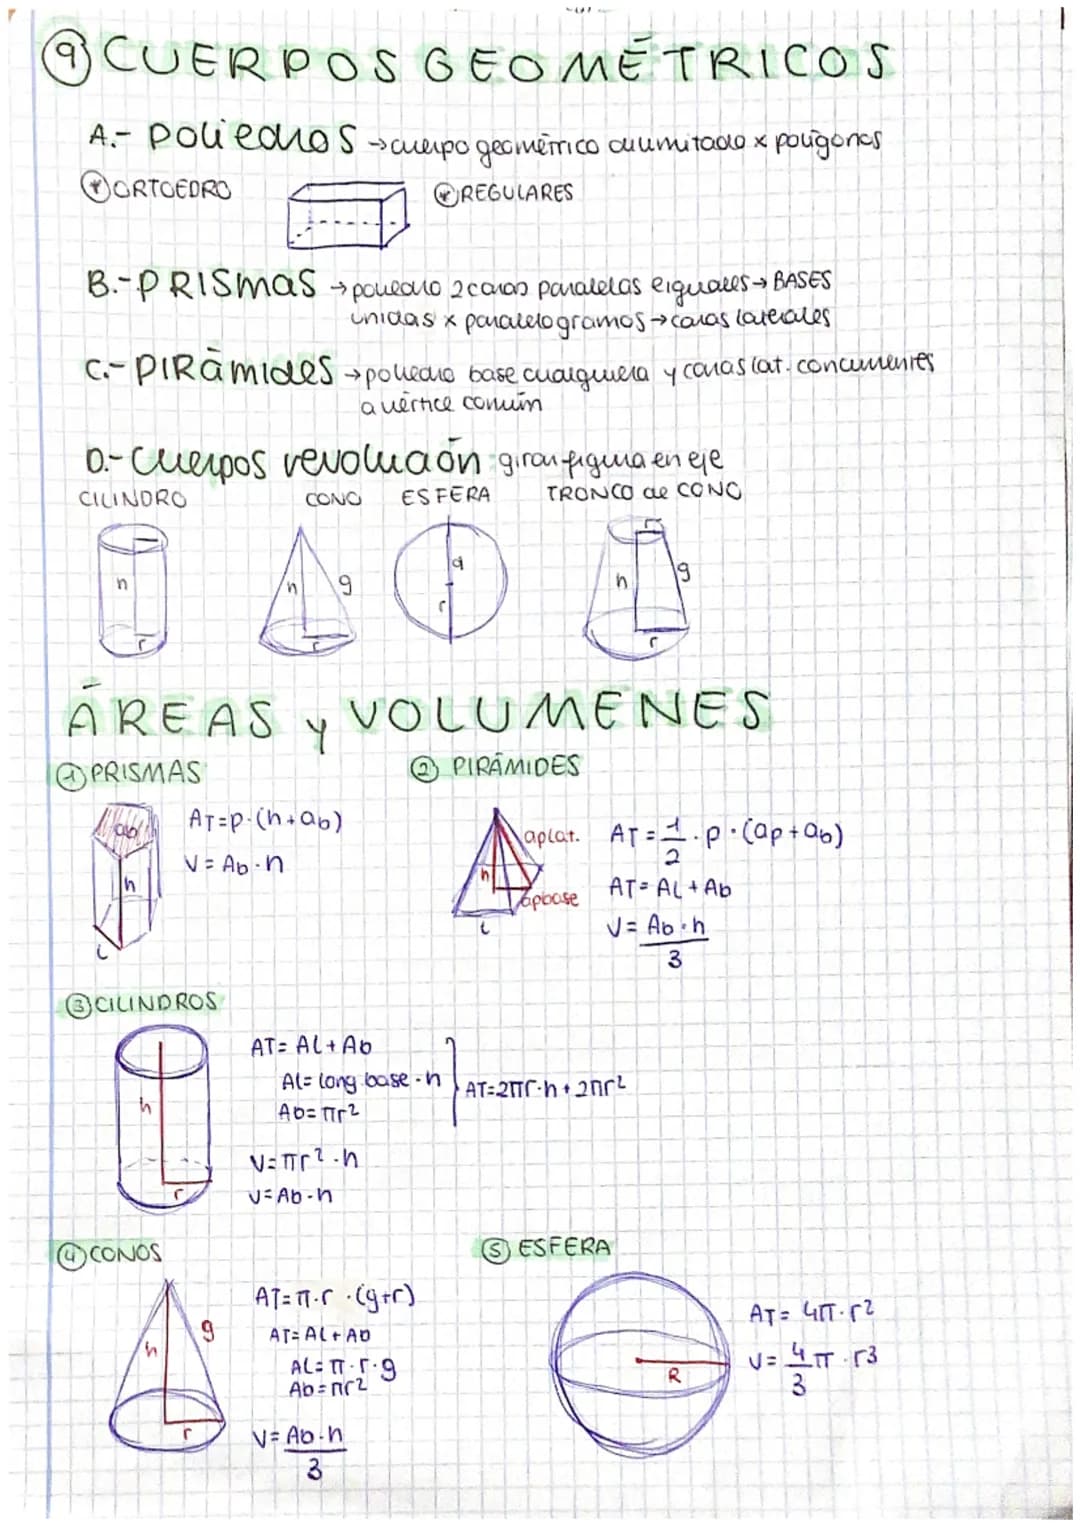 9 CUERPOS GEOMÉTRICOS
A.- Poliedros → cuerpo geométrico delimitado x polígonos
* ORTOEDRO
* REGULARES
B.- PRISMAS → poliedro 2 caras paralelas e iguales → BASES
unidas x paralelogramos → caras laterales
C.- PIRÁMIDES → poliedro base cualquiera y caras lat. concurrentes
a vértice común
D.- Cuerpos revolución: giran figura en eje
CILINDRO CONO ESFERA TRONCO de CONO
h r
h g r
d r
r h g r
ÁREAS y VOLUMENES
1 PRISMAS
ab
h
l
AT=p·(h+ab)
V= Ab·h
2 PIRÁMIDES
aplat.
h
apbase
l
AT= 1/2 · p · (ap+ab)
AT= AL + Ab
V= Ab·h/3
3 CILINDROS
h
r
AT= AL + Ab
AL= long base · h
Ab= πr²
} AT=2πr·h + 2πr²
V= πr²·h
V= Ab·h
4 CONOS
h
g
r
AT= π·r·(g+r)
AT= AL + Ab
AL= π·r·g
Ab= πr²
V= Ab·h/3
5 ESFERA
R
AT= 4π·r²
V= 4/3 π·r³